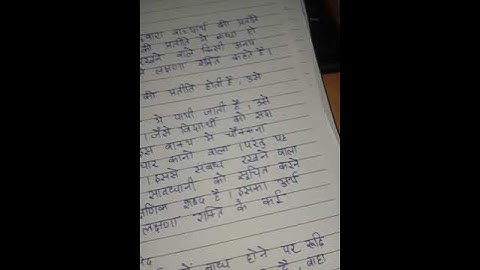 द्वारा वाच्यार्थ की प्रतीति
की प्रतीति में बाधा हो
रखने वाले किसी अन्य
लक्षणा शक्ति कहते हैं।
की प्रतीति होती है, उसे
में पायी जाती है, उसे
। जैसे विद्यार्थी को सदा
इस वाक्य में चौकन्ना
चार कानों वाला । परंतु यह
। इससे संबंध रखने वाला
सावधानी को सूचित करने
शब्द है। इसका अर्थ
लक्षणा शक्ति के कई
भेद
में बाधा होने पर रूढ़ि
है, वहाँ